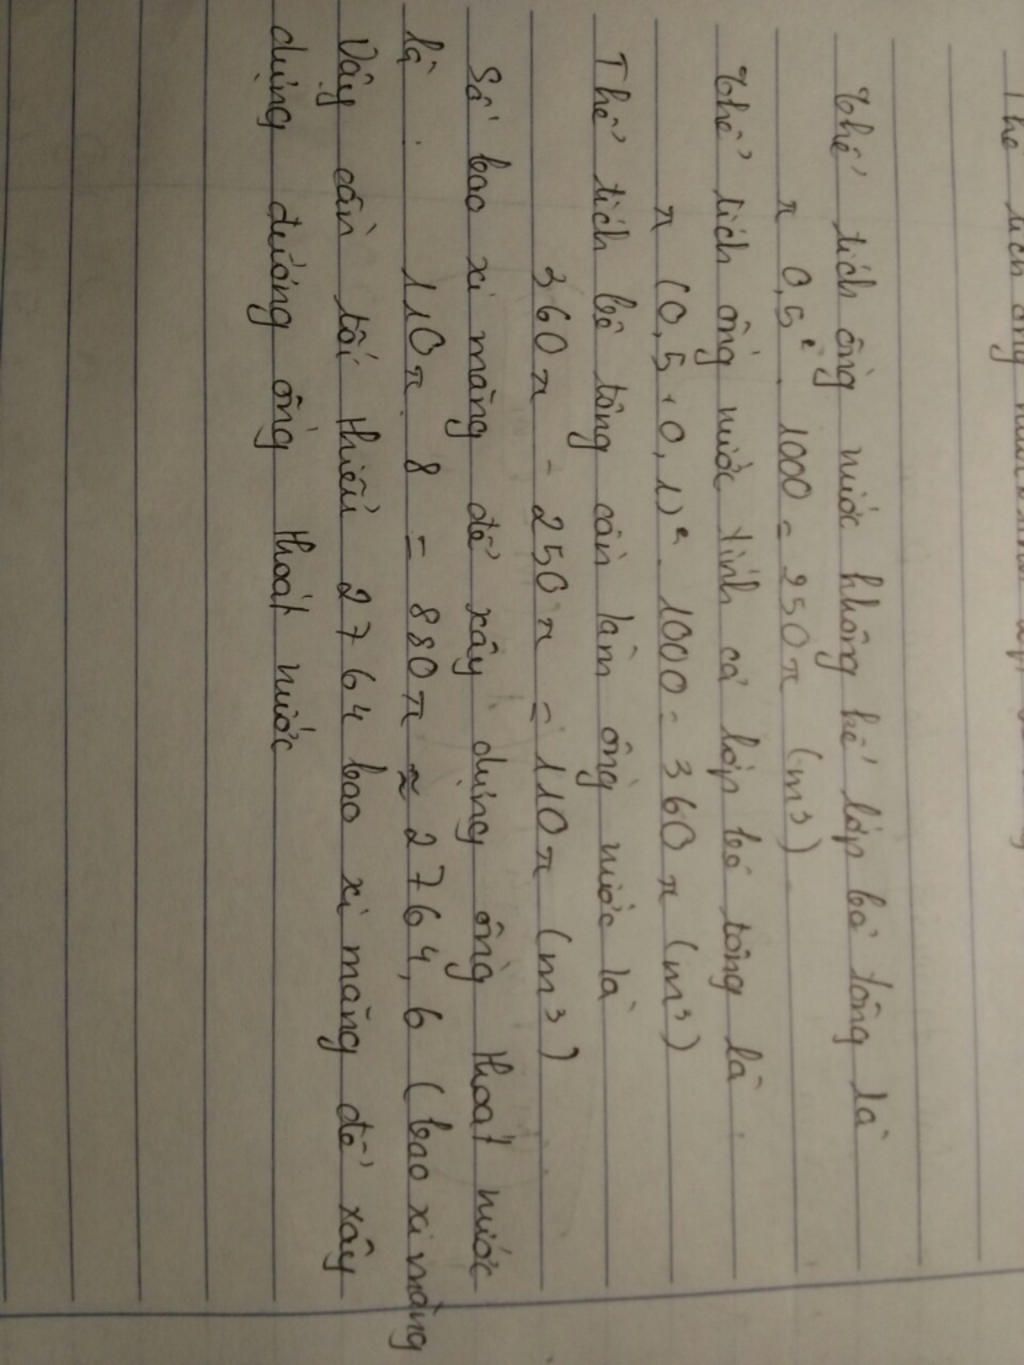 Thể tích ống nước không kể lớp bê tông là
π 0,5². 1000 = 250π (m³)
Thể tích ống nước tính cả lớp bê tông là
π (0,5 + 0,1)². 1000 = 360π (m³)
Thể tích bê tông cần làm ống nước là
360π - 250π = 110π (m³)
Số bao xi măng để xây dựng ống thoát nước
là . 110π. 8 = 880π ≈ 2764,6 (bao xi măng
Vậy cần tối thiểu 2764 bao xi măng để xây
dựng đường ống thoát nước